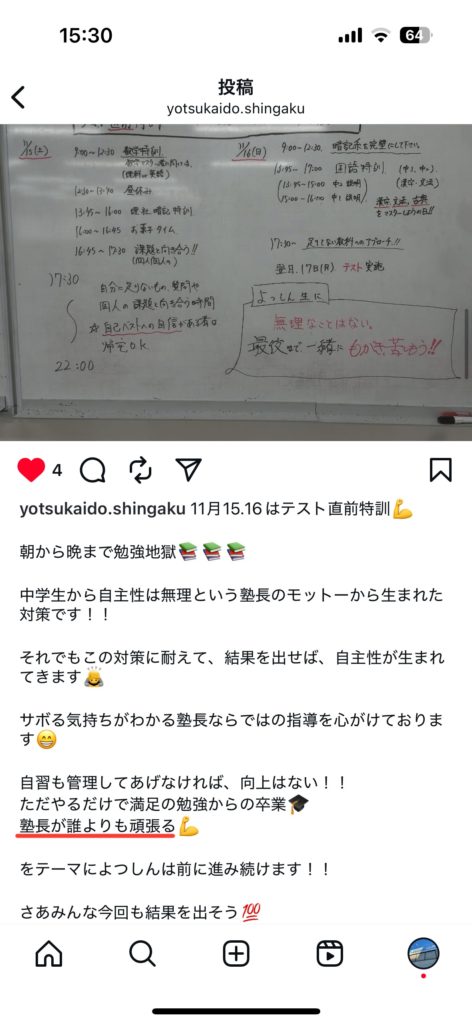 15:30
64
投稿
yotsukaido.shingaku
11/15(土)
9:00〜12:30 数学特訓
12:30〜13:40 昼休み
13:45〜16:00 理社 暗記特訓
16:00〜16:45 お菓子タイム
16:45〜17:30 課題と向き合う!!
17:30
自分に足りないもの、質問や
個人の課題と向き合う時間
☆自己ベストへの自信がある者は
帰宅OK
22:00
11/16(日)
9:00〜12:30 暗記系を完璧にして下さい
13:45〜17:00 国語特訓 (中1、中2)
(13:45〜15:00 中2 説明) (漢字・文法)
(15:00〜16:00 中1 説明)
漢字、文法、古典
をマスターしようの日!!
17:30〜 足りてない教科へのアプローチ!!
翌日、17日(月) テスト実施
よっしん生に
無理なことはない。
最後まで、一緒に もがき、苦しもう!!
4
yotsukaido.shingaku 11月15.16はテスト直前特訓💪
朝から晩まで勉強地獄📚📚📚
中学生から自主性は無理という塾長のモットーから生まれた
対策です！！
それでもこの対策に耐えて、結果を出せば、自主性が生まれ
てきます🙇
サボる気持ちがわかる塾長ならではの指導を心がけておりま
す😁
自習も管理してあげなければ、向上はない！！
ただやるだけで満足の勉強からの卒業🎓
塾長が誰よりも頑張る💪
をテーマによつしんは前に進み続けます！！
さあみんな今回も結果を出そう💯